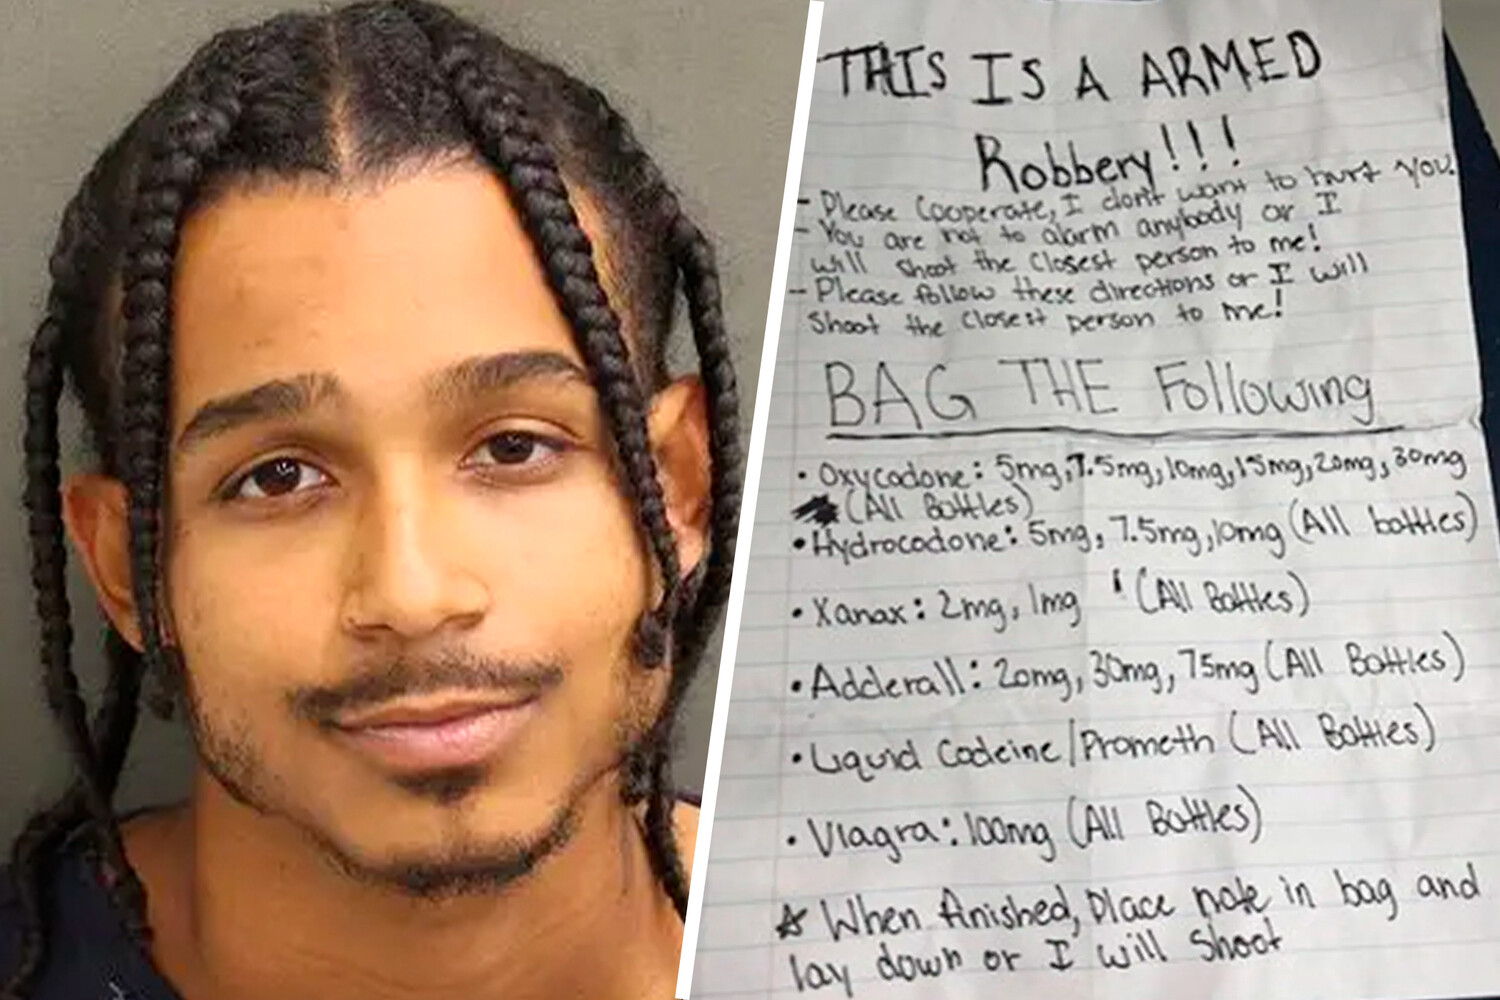 THIS IS A ARMED
Robbery!!!
- Please Cooperate, I don't want to hurt you.
- You are not to alarm anybody or I
will shoot the closest person to me!
- Please follow these directions or I will
shoot the closest person to me!
BAG THE Following
• Oxycodone: 5mg, 7.5mg, 10mg, 15mg, 20mg, 30mg
(All Bottles)
• Hydrocodone: 5mg, 7.5mg, 10mg (All bottles)
• Xanax: 2mg, 1mg (All Bottles)
• Adderall: 20mg, 30mg, 75mg (All Bottles)
• Liquid Codeine/Prometh (All Bottles)
• Viagra: 100mg (All Bottles)
☆ When finished, place note in bag and
lay down or I will shoot